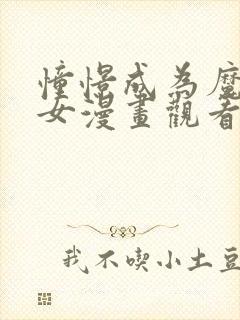 憧憬成為魔
女漫畫觀看
我不喫小土豆